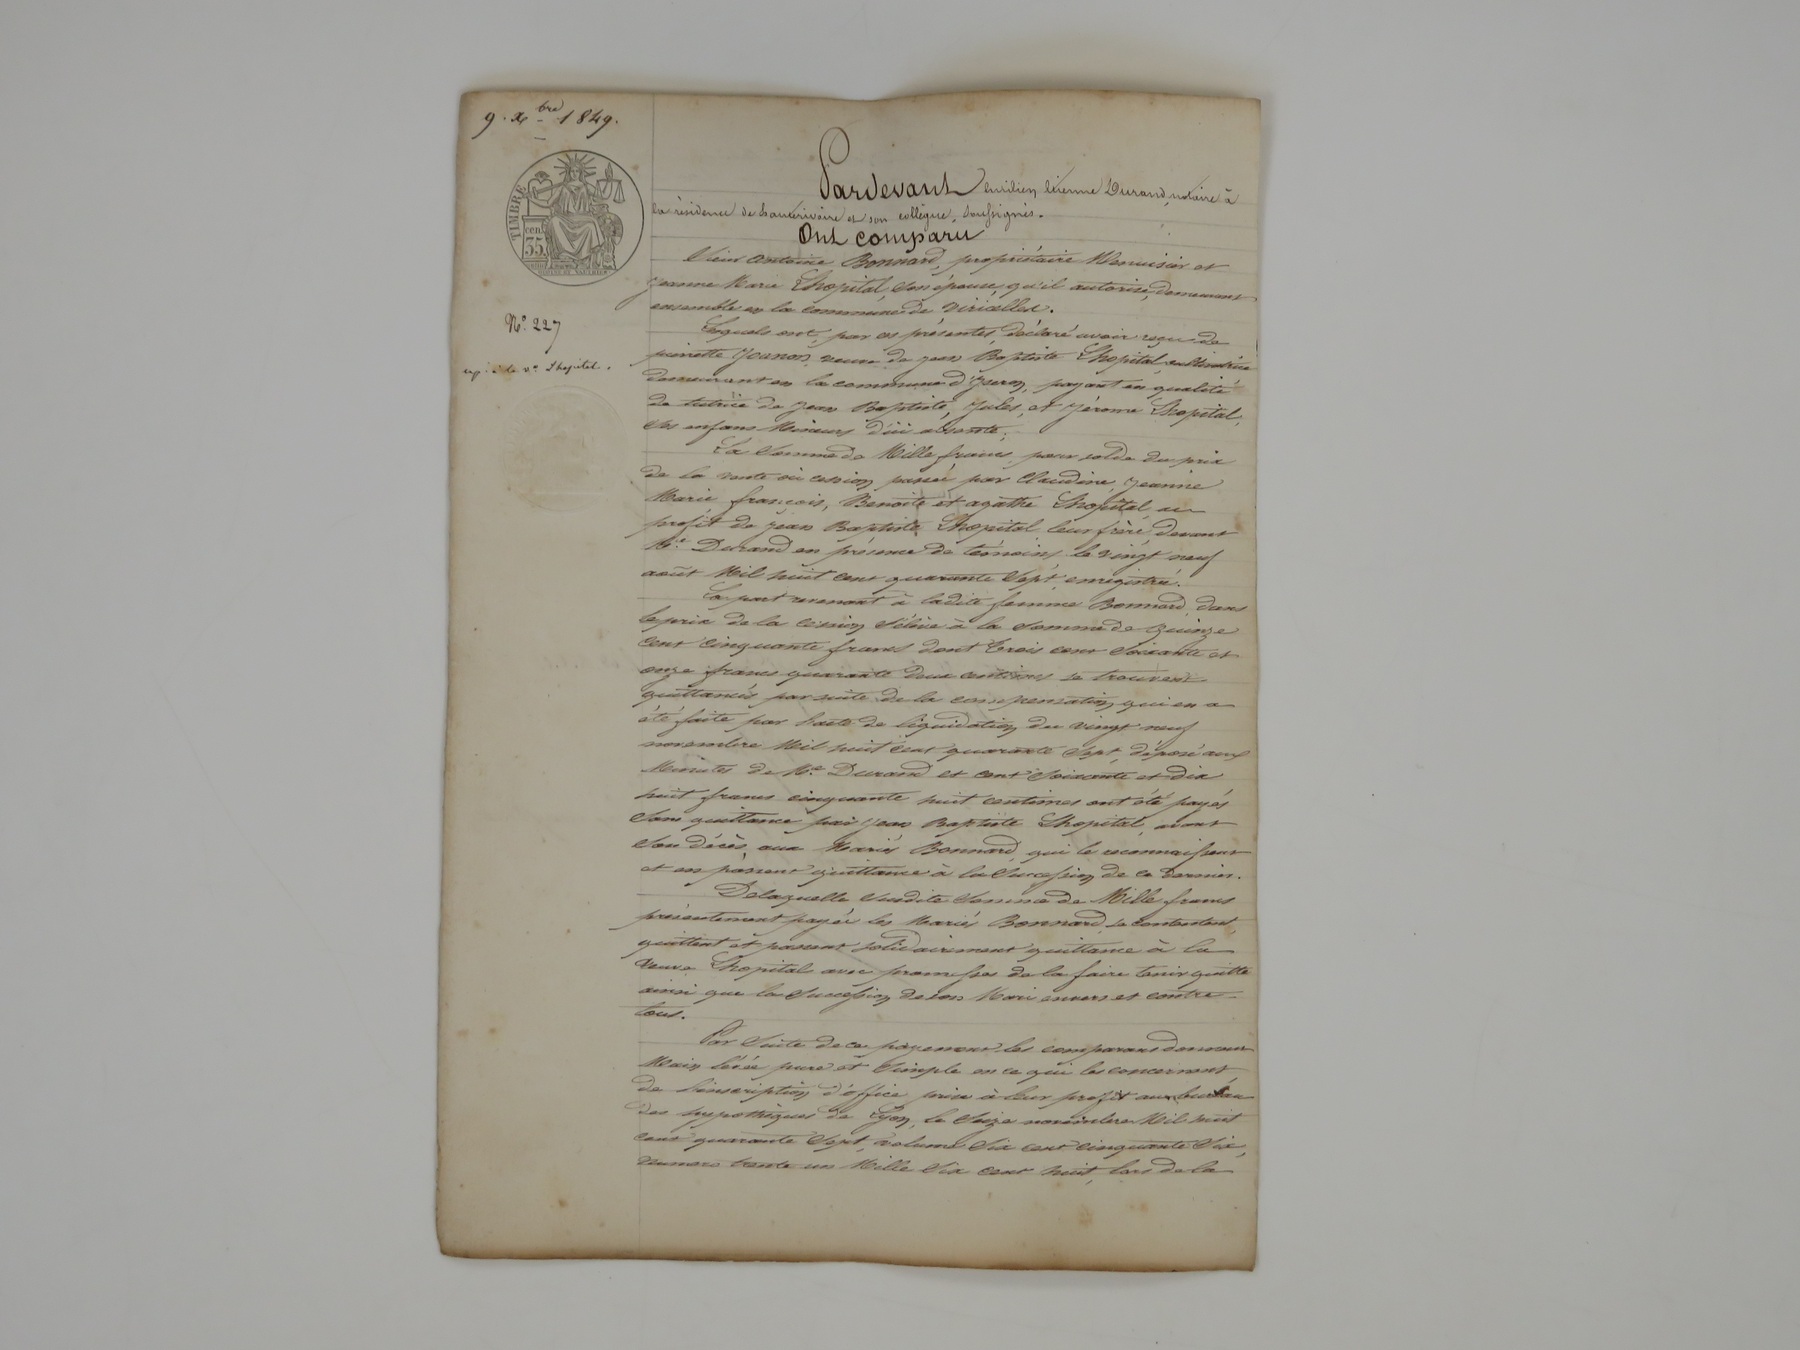 9. Xbre 1849.
TIMBRE
cen.
35
Nº. 227
exp. à la ve. Lhopital.
Pardevant Emilien Etienne Durand, notaire à
la résidence de hauterivoire et son collègue, soussignés.
Ont comparu
Sieur Antoine Bonnard, propriétaire Menuisier et
jeanne Marie Lhopital, son épouse, qu'il autorise, demeurant
ensemble en la commune de Viricelles.
Lesquels ont, par ces présentes, déclaré avoir reçu de
pierrette jeanon veuve de jean Baptiste Lhopital, cultivatrice
demeurant en la commune d'yzeron, payant en qualité
de tutrice de jean Baptiste, jules, et jérome Lhopital,
ses enfans Mineurs d'ici absente;
La Somme de Mille francs, pour solde du prix
de la vente ou cession passée par Claudine, jeanne
Marie françois, Benoite et agathe Lhopital, au
profit de jean Baptiste Lhopital leur frère, devant
Me. Durand en présence de témoins le vingt neuf
août Mil huit cent quarante Sept, enregistré.
La part revenant à ladite femme Bonnard, dans
le prix de la cession s'élève à la Somme de quinze
cent cinquante francs dont trois cent soixante et
onze francs quarante deux centimes se trouvent
quittancés par suite de la compensation qui en a
été faite par l'acte de liquidation du vingt neuf
novembre Mil huit cent quarante Sept, déposé aux
Minutes de Me. Durand et cent soixante et dix
huit francs cinquante huit centimes ont été payés
sans quittance par jean Baptiste Lhopital, avant
son décès, aux Mariés Bonnard qui le reconnaissent
et en passent quittance à la Succession de ce dernier.
De laquelle susdite Somme de Mille francs
présentement payée les Mariés Bonnard, se contentent,
quittent et passent solidairement quittance à la
veuve Lhopital avec promesses de la faire tenir quitte
ainsi que la Succession de son Mari envers et contre
tous.
Par Suite de ce payement, les comparans donnent
Main levée pure et Simple en ce qui les concernent
de l'inscription d'office prise à leur profit au bureau
des hypothèques de Lyon, le Seize novembre Mil huit
cent quarante Sept, volume Six cent cinquante Six,
numero trente un Mille Six cent huit, lors de la